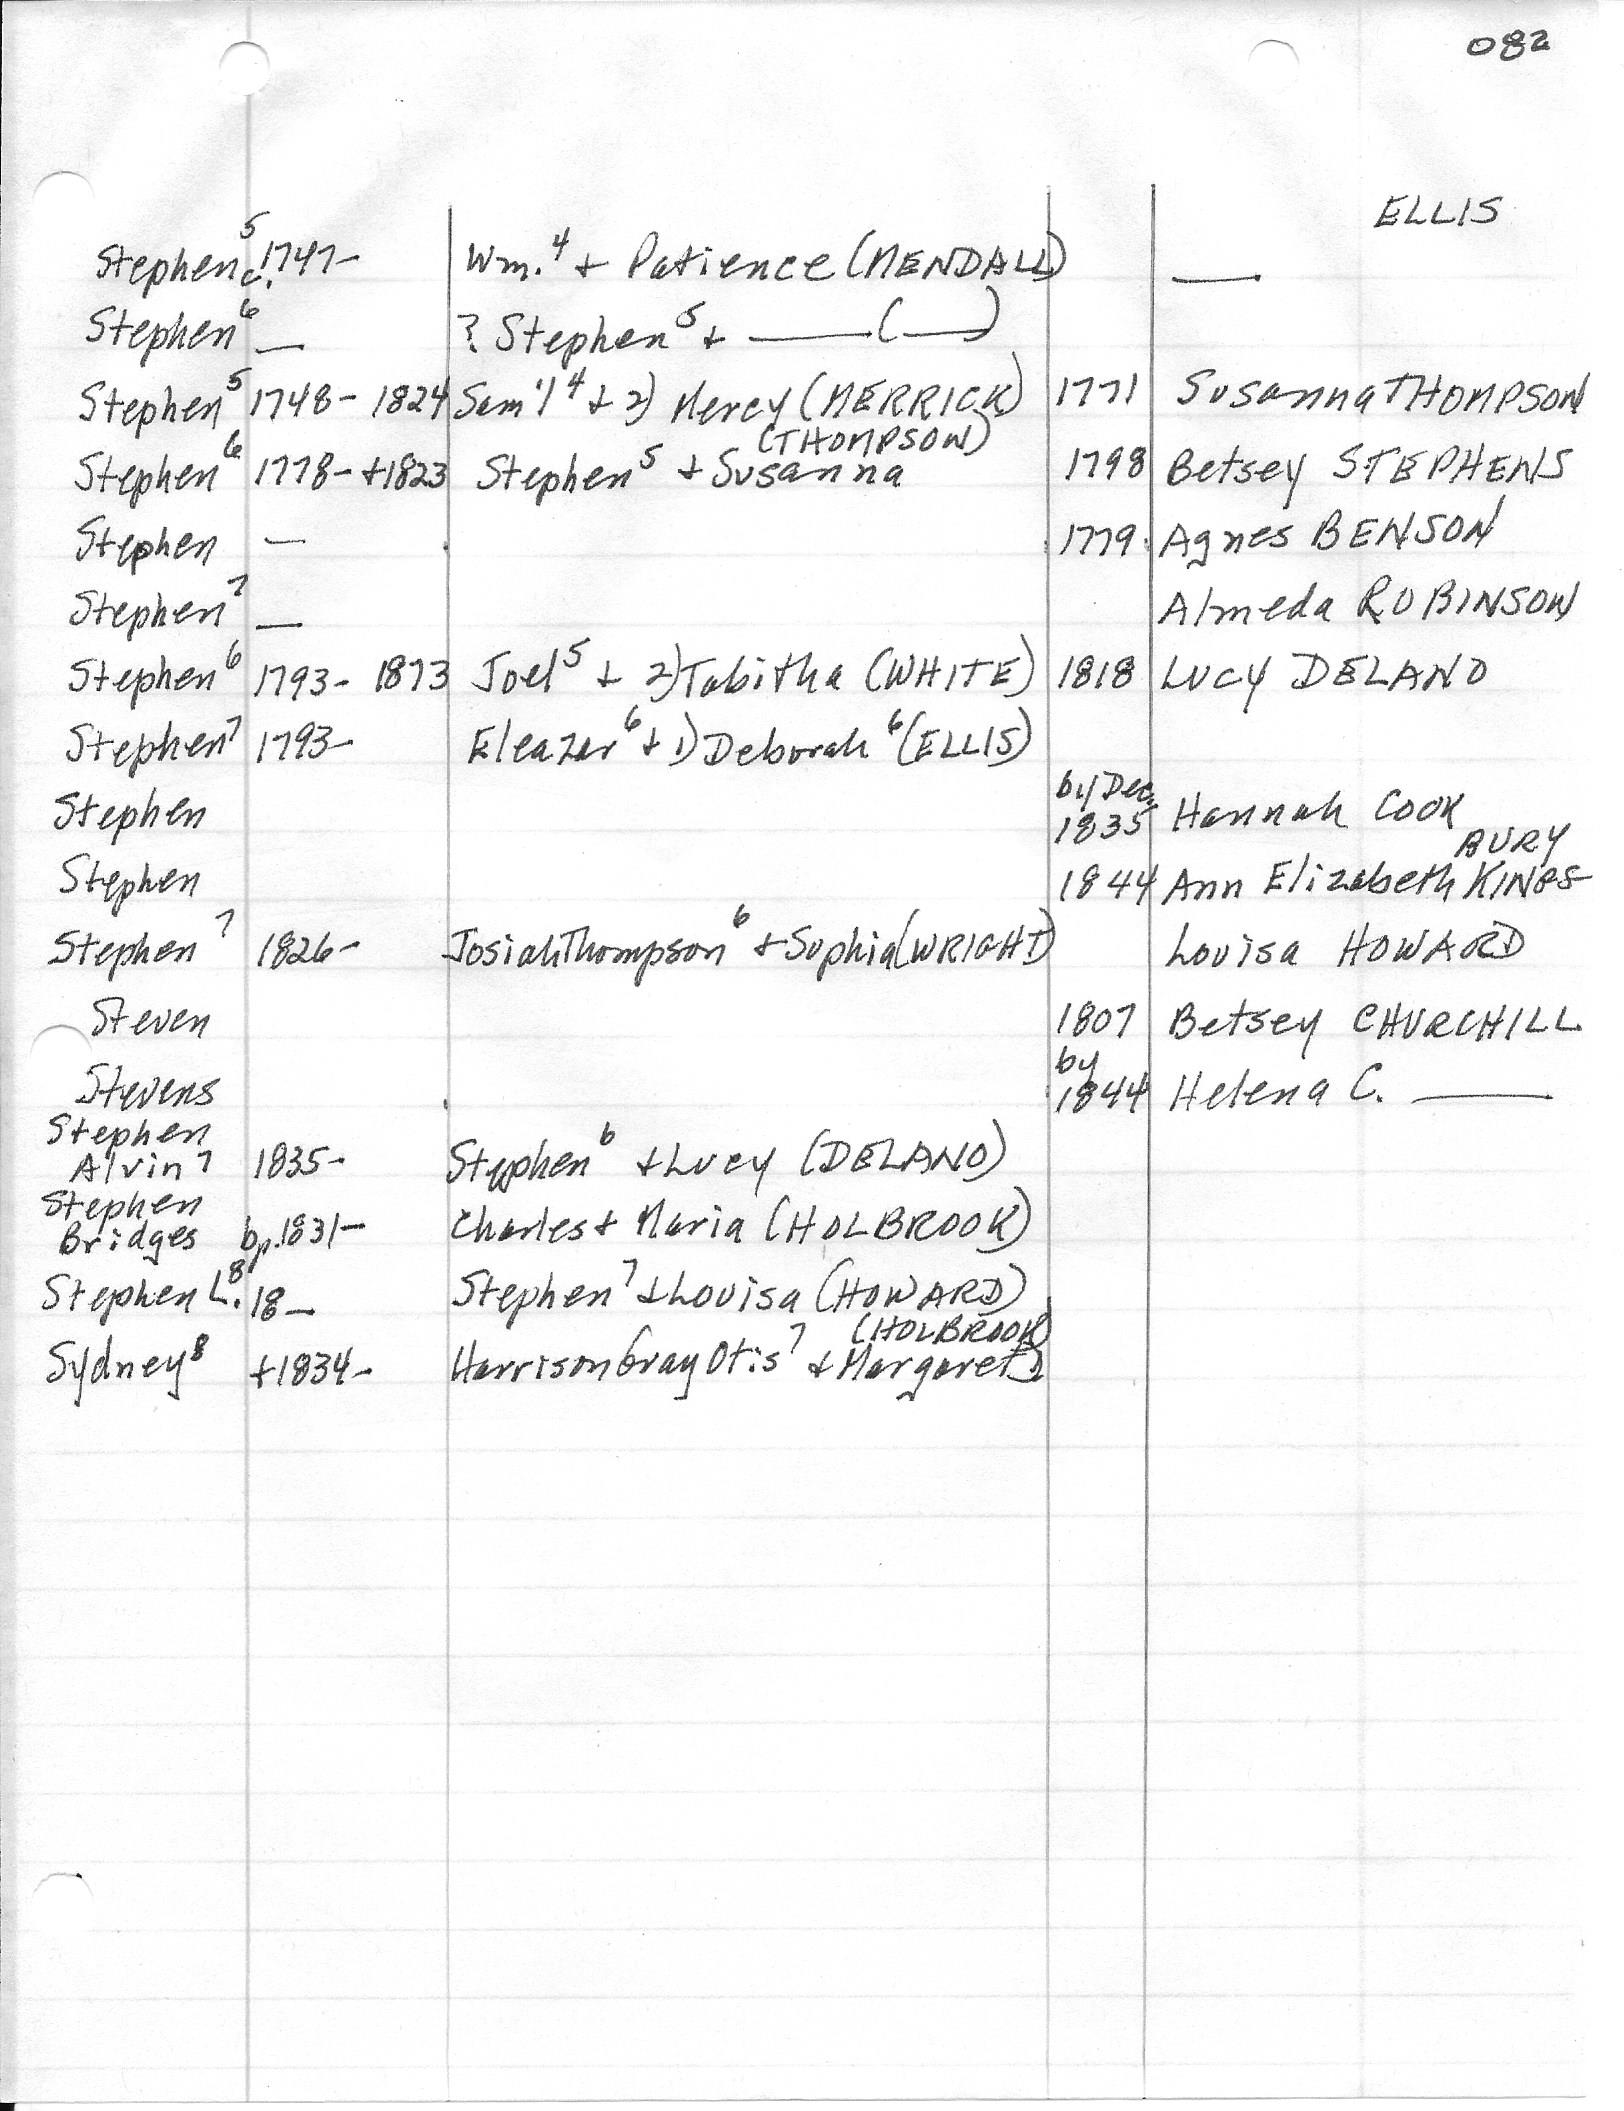 082
ELLIS
Stephen⁵ c.1747- Wm.⁴ + Patience (MENDALL) —
Stephen⁶ — ? Stephen⁵ + —— (——)
Stephen⁵ 1748- 1824 Sam'l⁴ + 2) Mercy (MERRICK) 1771 Susanna THOMPSON
(THOMPSON)
Stephen⁶ 1778- +1823 Stephen⁵ + Susanna 1798 Betsey STEPHENS
Stephen — 1779 Agnes BENSON
Stephen⁷ — Almeda ROBINSON
Stephen⁶ 1793- 1873 Joel⁵ + 2) Tabitha (WHITE) 1818 Lucy DELANO
Stephen⁷ 1793- Eleazer⁶ + 1) Deborah⁶ (ELLIS)
by Dec.
Stephen 1835 Hannah COOK
BURY
Stephen 1844 Ann Elizabeth KINGS-
Stephen⁷ 1826- Josiah Thompson⁶ + Sophia (WRIGHT) Louisa HOWARD
Steven 1807 Betsey CHURCHILL
by
Stevens 1844 Helena C. ——
Stephen
Alvin⁷ 1835- Stephen⁶ + Lucy (DELANO)
Stephen
Bridges bp.1831- Charles + Maria (HOLBROOK)
Stephen L.⁸ 18— Stephen⁷ + Louisa (HOWARD)
(HOLBROOK)
Sydney⁸ +1834- Harrison Gray Otis⁷ + Margaret D